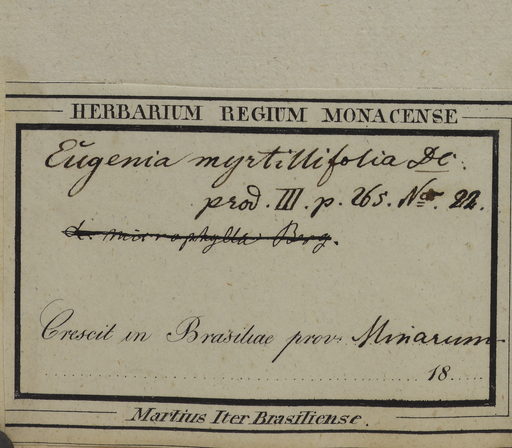 HERBARIUM REGIUM MONACENSE
Eugenia myrtillifolia DC.
prod. III. p. 265. No. 22.
microphylla Berg.
Crescit in Brasiliae prov. Minarum
18
Martius Iter Brasiliense.